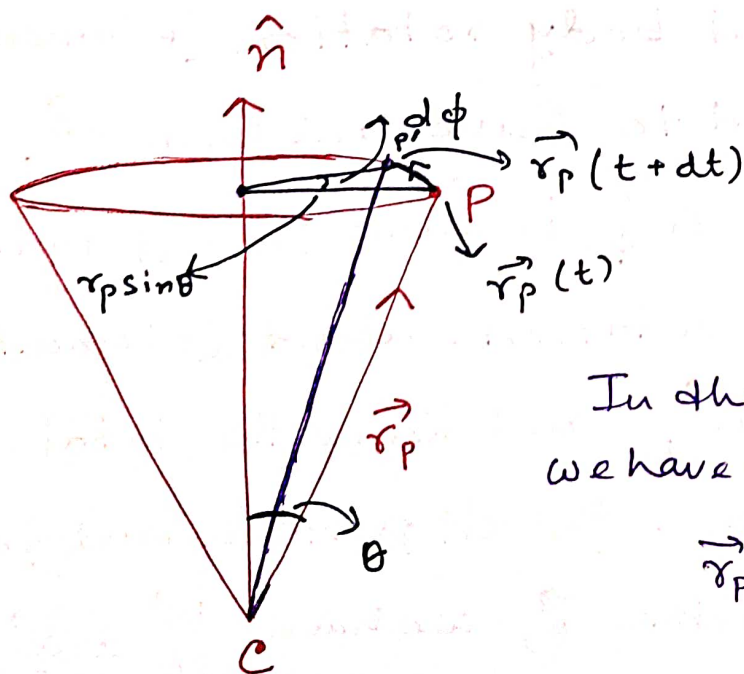 n̂
dφ
P'
r⃗_p (t + dt)
P
r_p sinθ
r⃗_p (t)
r⃗_p
θ
C
In th
we have
r⃗_p